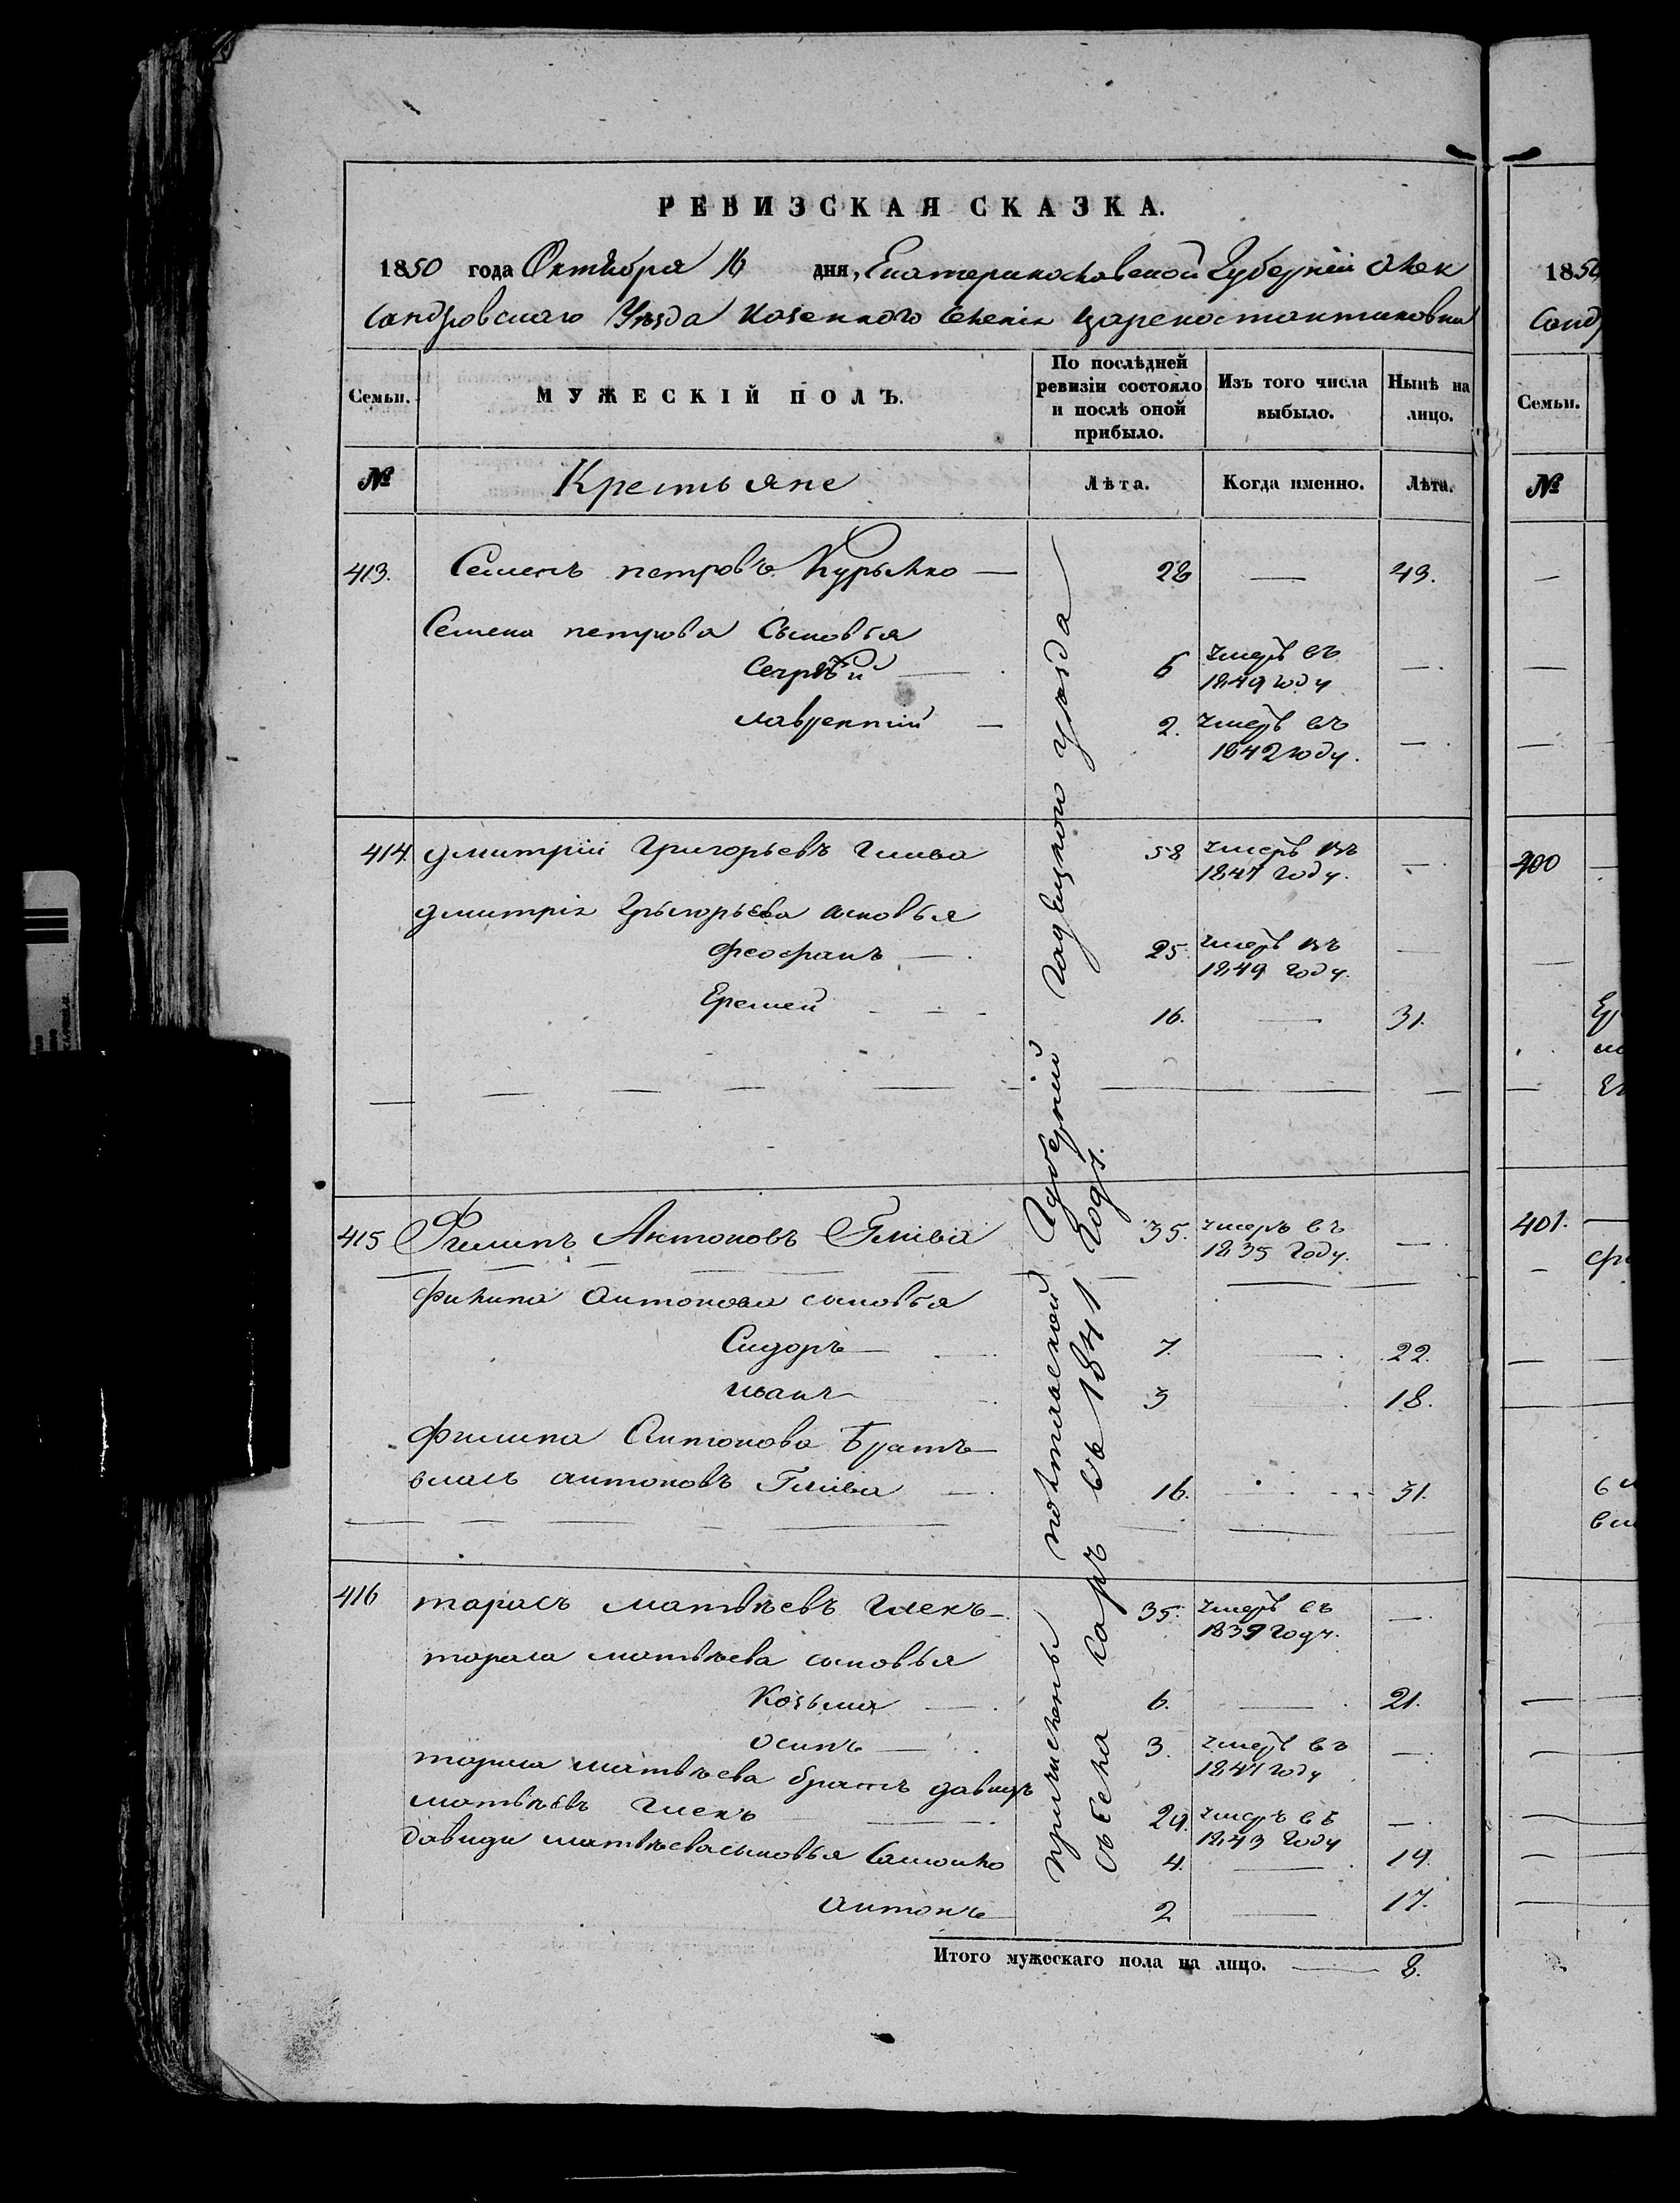 РЕВИЗСКАЯ СКАЗКА.
1850 года Октября 16 дня, Екатеринославской Губерніи Алек
сандровскаго Уѣзда Казенного Селенія Цареконстантиновки
Семьи.
МУЖЕСКІЙ ПОЛЪ.
По послѣдней
ревизіи состояло
и послѣ оной
прибыло.
Изъ того числа
выбыло.
Нынѣ на
лицо.
№ Крестьяне Лѣта. Когда именно. Лѣта.
413. Семенъ петровъ Курылко — 28 — 43.
Семена петрова Сыновья
Сергѣй — 6 умеръ въ —
1849 году
лаврентій — 2. умеръ въ —
1842 году.
414. дмитрій Григорьевъ Глива 58 умеръ въ —
1847 году.
дмитрія Грыгорьева сыновья
Феофанъ — 25 умеръ въ —
1849 году.
Еремей 16. — 31.
415 Филипъ Антоновъ Глива 35. умеръ въ —
1835 году.
Филипа Антонова сыновья
Сидоръ — 7. — 22.
иванъ 3 18.
Филипа Антонова Братъ
власъ антоновъ Глива 16. 31.
416 тарасъ матвѣевъ Глекъ 35. умеръ въ —
1839 году.
тараса матвѣева сыновья
Козьма — 6. — 21.
осипъ — 3. умеръ въ —
1847 году
тараса матвѣева братъ давидъ
матвѣевъ Глекъ 29. умеръ въ —
1843 году
давида матвѣева сыновья Самойло 4. — 19.
антонъ 2 — 17.
Итого мужескаго пола на лицо. — 8.
причислены полтавской Губерніи гадецкого уезда
съ села въ 1841 году.
1850
Санд
Семьи.
№
400
401.